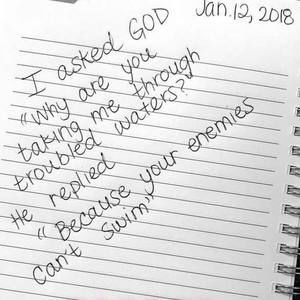 Jan. 12, 2018
I asked GOD
"Why are you
taking me through
troubled waters?"
He replied
"Because your enemies
can't swim"